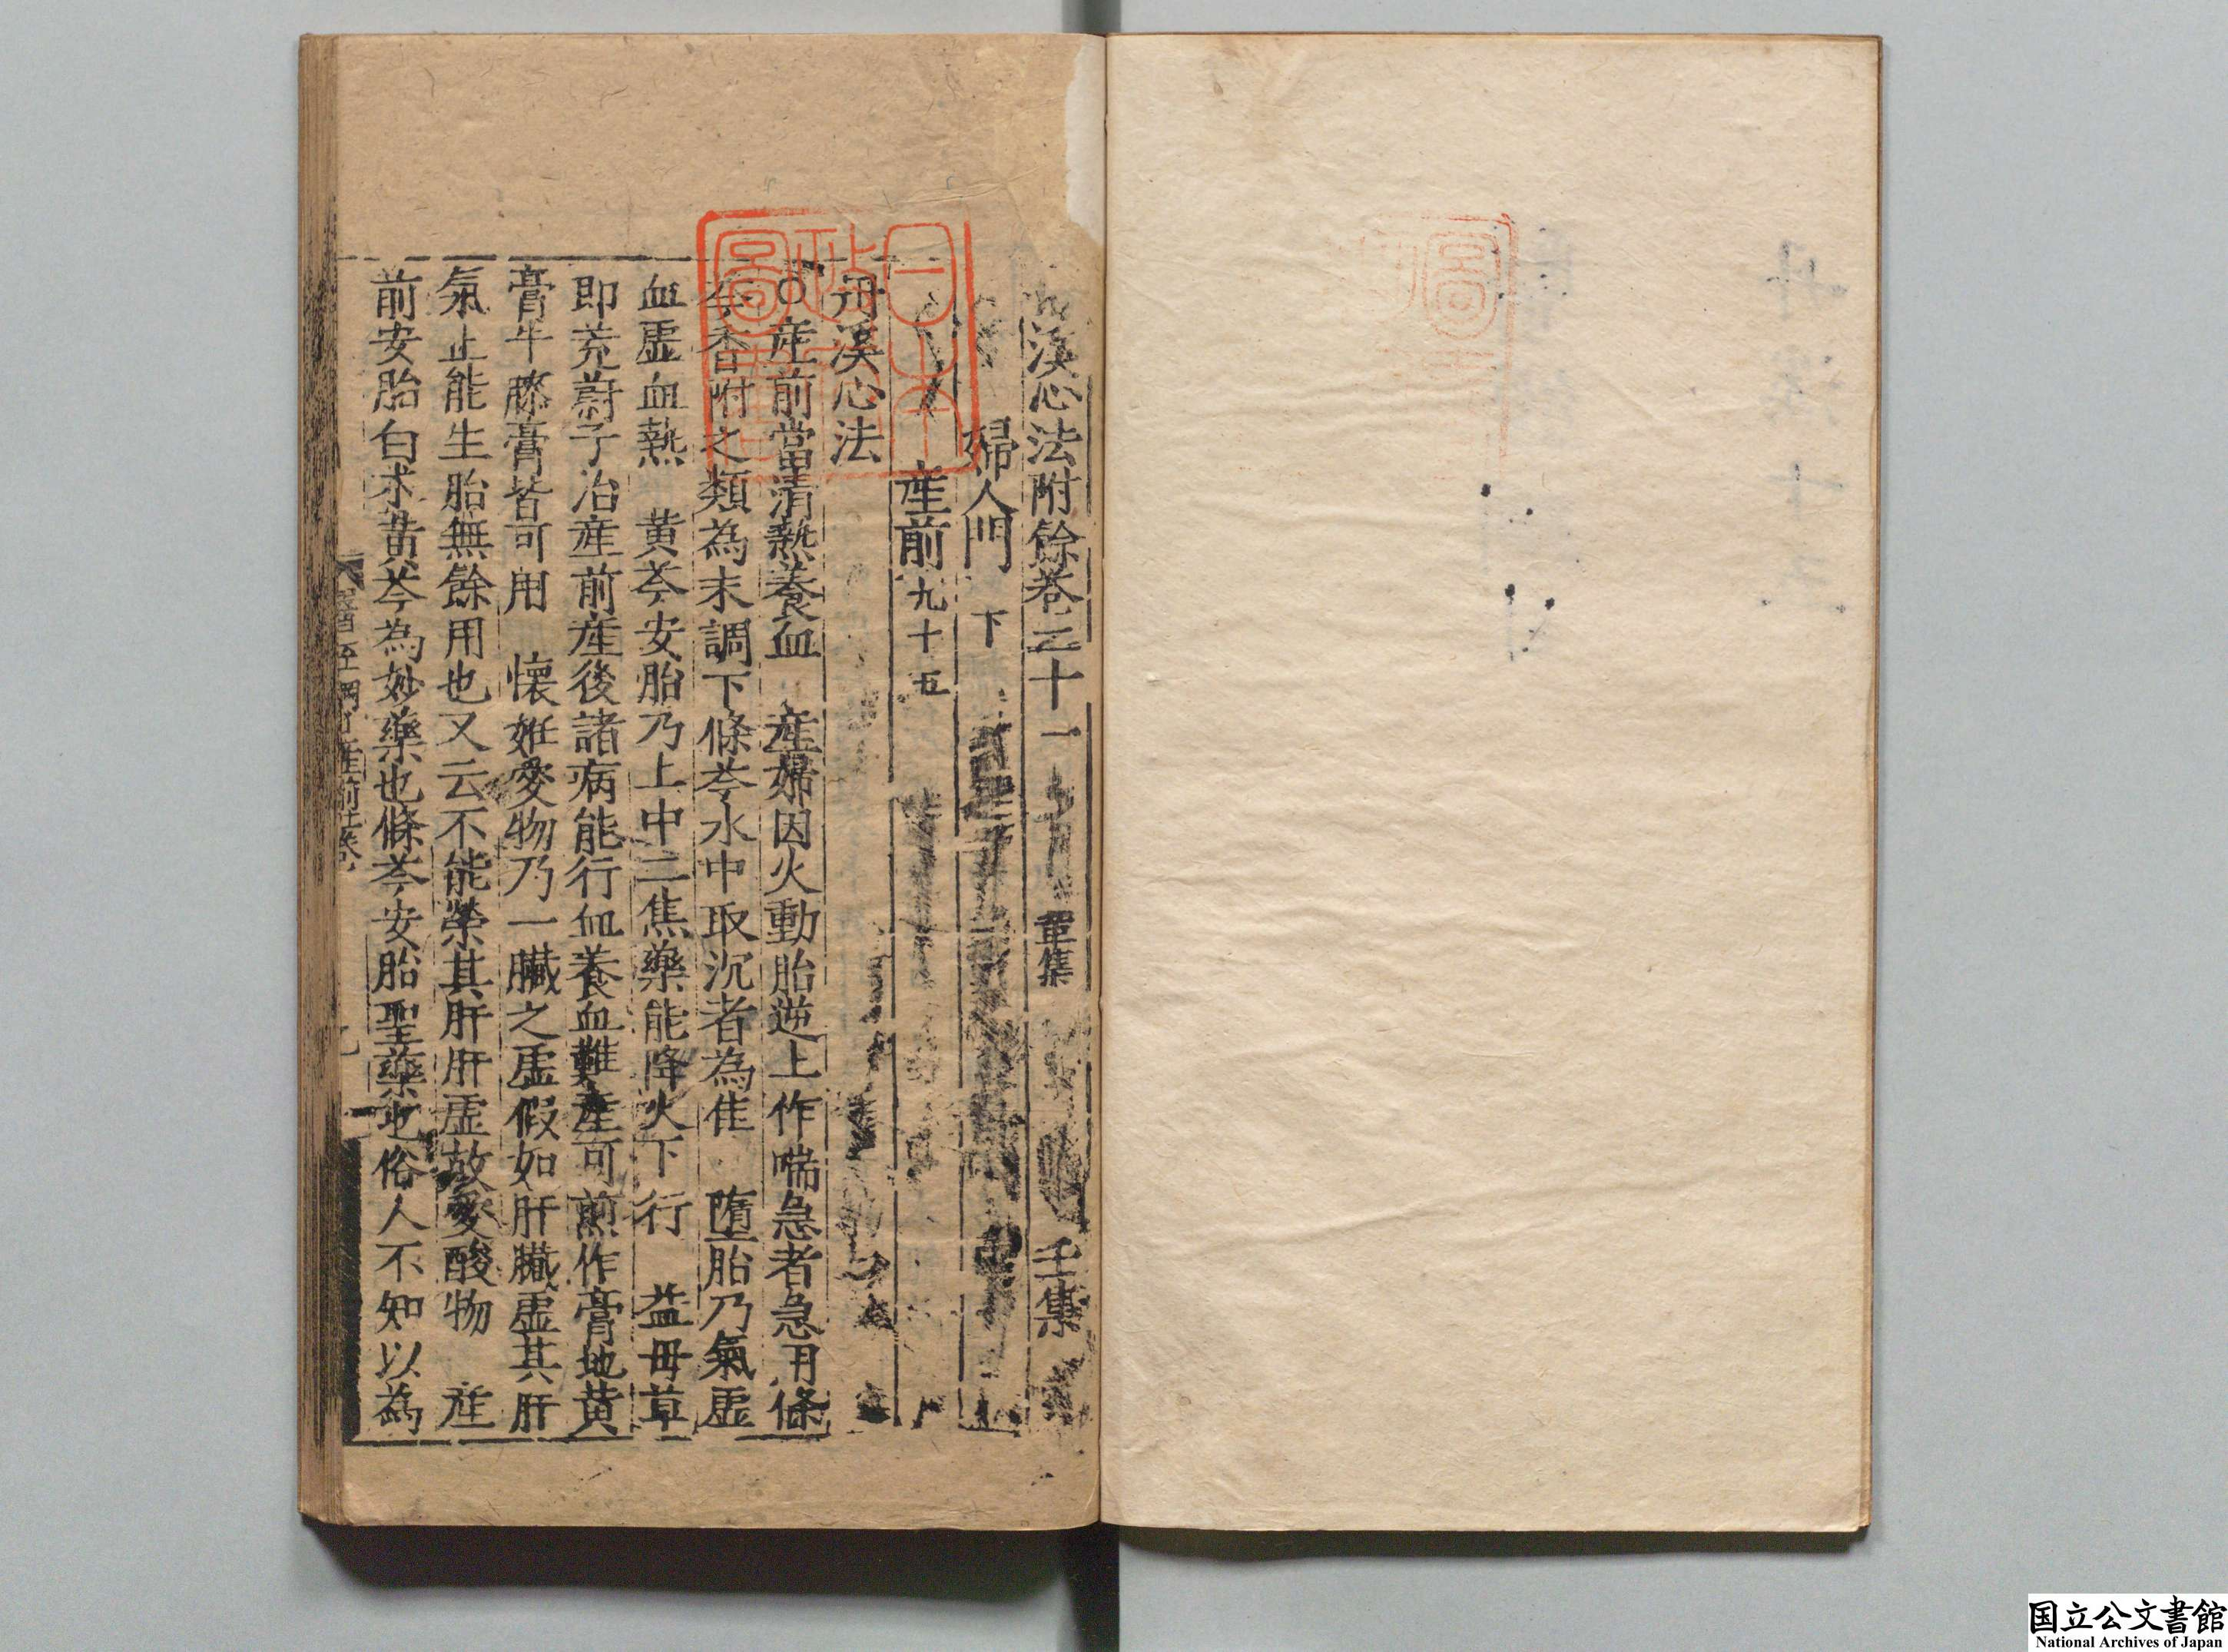 溪心法附餘卷之十一 重集 壬集
婦人門 下
産前 九十五
丹溪心法
○産前當清熱養血 産婦因火動胎逆上作喘急者急用條
芩香附之類為末調下條芩水中取沉者為佳 墮胎乃氣虛
血虛血熱 黄芩安胎乃上中二焦藥能降火下行 益母草
即茺蔚子治産前産後諸病能行血養血難産可煎作膏地黄
膏牛膝膏皆可用 懷姙愛物乃一臟之虛假如肝臟虛其肝
氣止能生胎無餘用也又云不能榮其肝肝虛故愛酸物 産
前安胎白朮黄芩為妙藥也條芩安胎聖藥也俗人不知以為
国立公文書館
National Archives of Japan